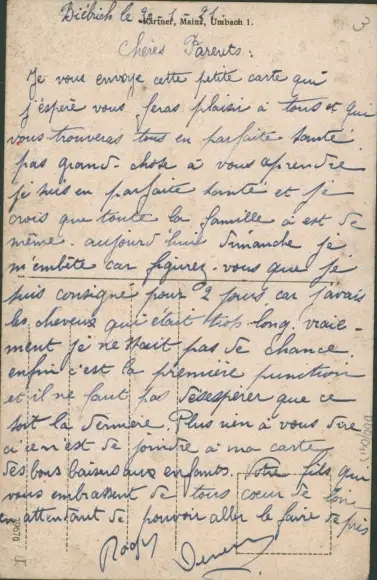 Biébrich le 9-1-21.
Karfner, Mainz, Umbach 1.
3
Chères Parents:
Je vous envoye cette petite carte qui
j'espère vous feras plaisir à tous et qui
vous trouveras tous en parfaite santé
pas grand-chose à vous aprendre
je suis en parfaite santé et je
crois que toute la famille à est de
même. aujourd'hui dimanche je
m'embête car figurez-vous que je
suis consigné pour 2 jours car j'avais
les cheveux qui était trop long. vraie-
ment je ne pas de chance.
enfin c'est la première punition
et il ne faut pas désespérer que ce
soit la dernière. Plus rien à vous dire
ci ce n'est de joindre à ma carte
des bons baisers aux enfants. Votre fils qui
vous embrassent de tous cœur de loin
en attendant de pouvoir aller le faire de près